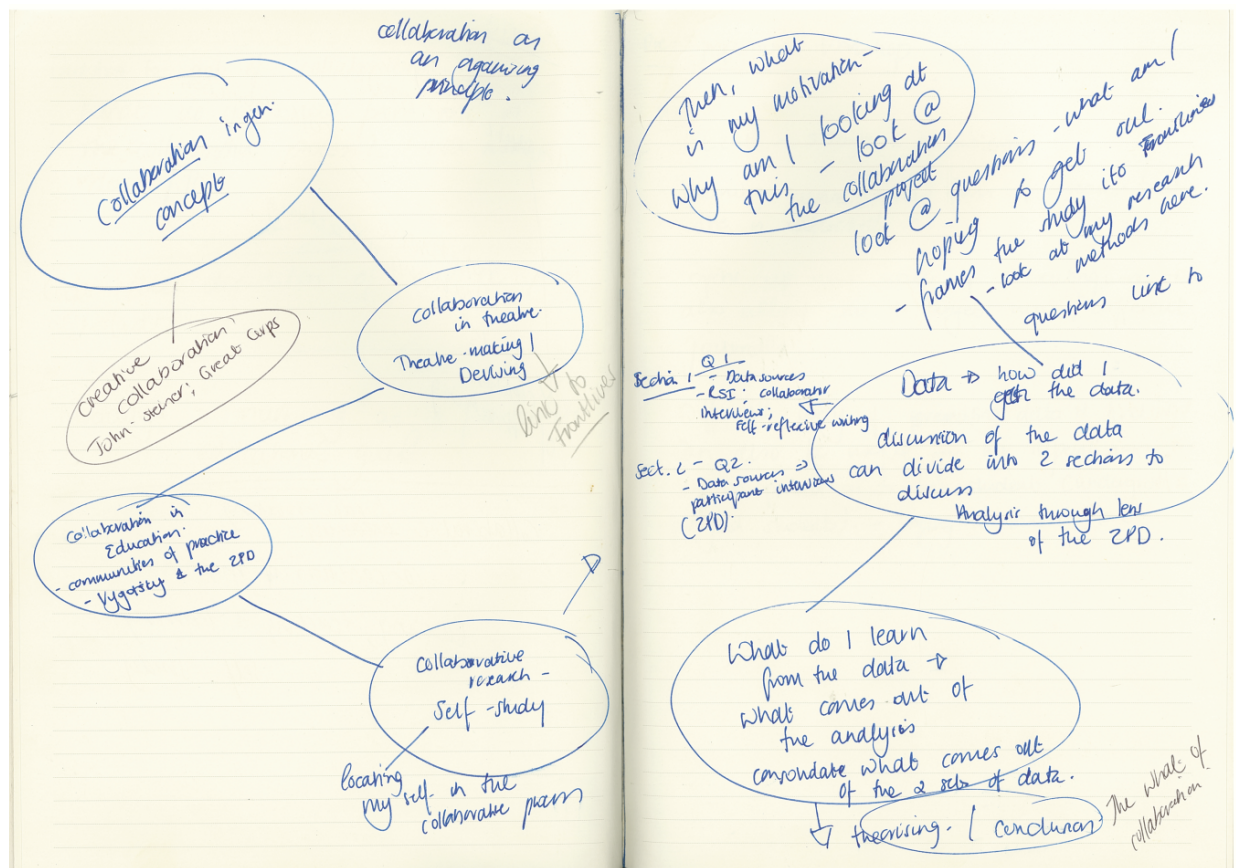 collaboration as
an organising
principle.
Collaboration in gen.
concepts
creative
collaboration
John-steiner; Great Grps
collaboration
in theatre.
Theatre-making /
Devising
link to
Frontlines
Collaboration in
Education.
- communities of practice
- Vygotsky & the ZPD
Collaborative
research -
Self-study
locating
my self in the
collaborative process
Then, what
is my motivation -
why am I looking at
this, - look @
the collaboration
project
look @ questions - what am I
hoping to get out.
- frames the study ito Frontlines
- look at my research
methods here.
questions link to
Section 1 - Q1
- Data sources
- RSI; collaborator
interviews;
self-reflective writing
Sect. 2 - Q2.
- Data sources ⇒
participant interviews
(ZPD).
Data → how did I
get the data.
discussion of the data
can divide into 2 sections to
discuss
Analysis through lens
of the ZPD.
What do I learn
from the data →
what comes out of
the analysis
consolidate what comes out
of the 2 sets of data.
theorising - /
The what of
collaboration